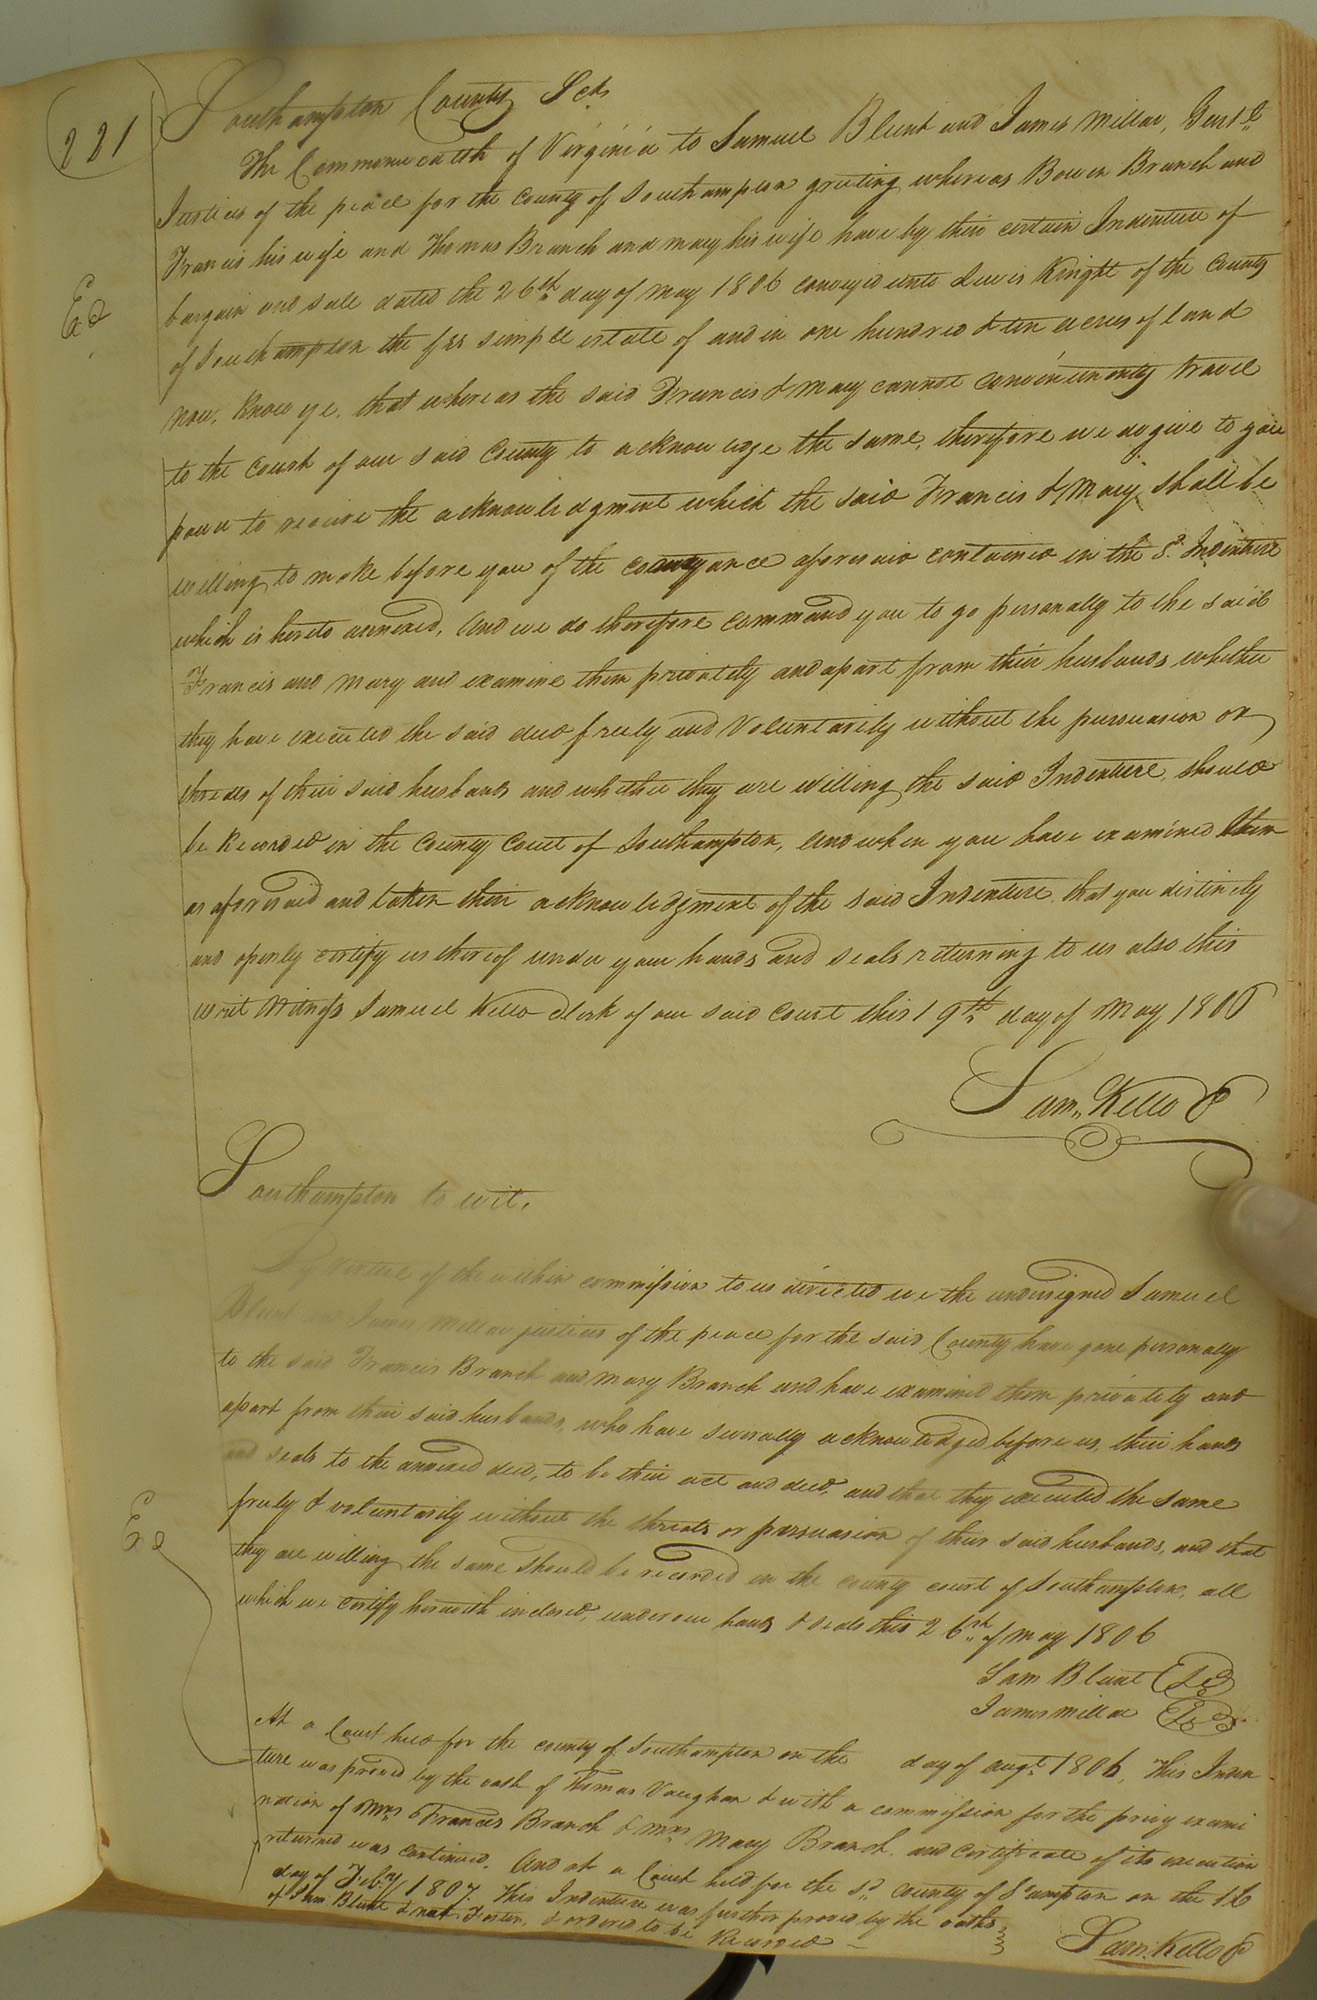 221
Southampton County Sct
The Commonwealth of Virginia to Samuel Blunt and James Millar, Gent.
Justices of the peace for the County of Southampton greeting whereas Bowen Branch and
Francis his wife and Thomas Branch and mary his wife have by their certain Indenture of
bargain and sale dated the 26th day of may 1806 conveyed unto Lewis Knight of the County
Ed
of Southampton the fee simple estate of and in one hundred & ten acres of land
now, know ye, that whereas the said Francis & mary cannot conveniently travel
to the court of our said County to acknowledge the same, therefore we do give to you
power to receive the acknowledgment which the said Francis & Mary shall be
willing to make before you of the conveyance aforesaid contained in the sd. Indenture
which is hereto annexed, And we do therefore command you to go personally to the said
Francis and Mary and examine them privately and apart from their husbands whether
they have executed the said deed freely and Voluntarily without the persuasion or
threats of their said husbands and whether they are willing the said Indenture, should
be Recorded in the County Court of Southampton, And when you have examined them
as aforesaid and taken their acknowledgment of the said Indenture that you distinctly
and openly certify us thereof under your hands and seals returning to us also this
writ Witness Samuel Kello Clerk of our said Court this 19th day of May 1806
Sam. Kello C
Southampton to wit,
By virtue of the within commission to us directed we the undersigned Samuel
Blunt and James Millar justices of the peace for the said County have gone personally
to the said Francis Branch and Mary Branch and have examined them privately and
apart from their said husbands, who have severally acknowledged before us, their hands
and seals to the annexed deed, to be their act and deed, and that they executed the same
freely & voluntarily without the threats or persuasion of their said husbands, and that
Ed
they are willing the same should be recorded in the county court of Southampton, all
which we certify herewith inclosed, under our hands & seals this 26th of may 1806
Sam Blunt LS
James Millar LS
At a Court held for the county of Southampton on the day of Augt. 1806, This Inden
ture was proved by the oath of Thomas Vaughan & with a commission for the privy exami
nation of Mrs Frances Branch & Mrs Mary Branch, and certificate of its execution
returned was continued. And at a Court held for the sd. county of S'ampton on the 16
day of Feby. 1807. This Indenture was further proved by the oaths
of Sam Blunt & Foster, & ordered to be Recorded
Sam. Kello C